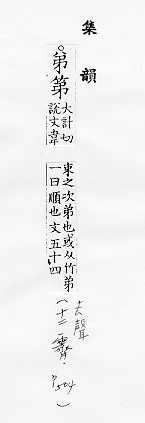 集韻
○弟第大計切
說文韋
束之次弟也或从竹弟
一曰順也文五十四
去聲
(十二霽.P504)